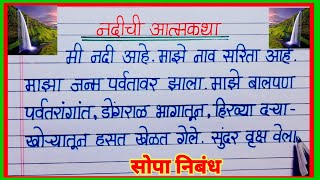 नदीची आत्मकथा
मी नदी आहे. माझे नाव सरिता आहे.
माझा जन्म पर्वतावर झाला. माझे बालपण
पर्वतरांगांत, डोंगराळ भागातून, हिरव्या दऱ्या-
खोऱ्यातून हसत खेळत गेले. सुंदर वृक्ष वेली
सोपा निबंध